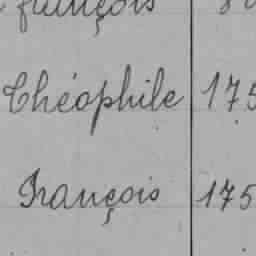 françois
Théophile 175
François 175